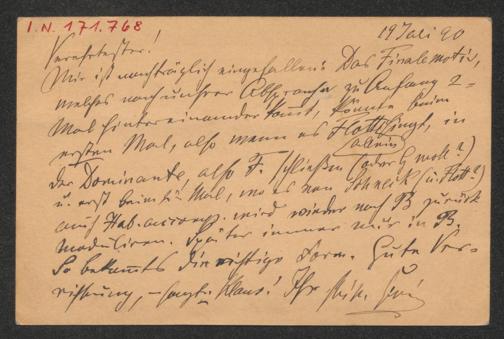 I.N. 171.768
19 Juli 90
Verehrtester!
Mir ist nachträglich eingefallen: Das Finalemotiv,
welches nach unsrer Absprache zu Anfang 2-
Mal hintereinander kommt, könnte beim
ersten Mal, also wenn es Flott singt, in
allein
der Dominante, also F. schließen (oder G moll?)
u. erst beim 2. Mal, wo es von Schneck (u. Flott?)
wird wieder nach B zurück
moduliren. Später immer nur in B.
So bekommts die richtige Form. Gute Ver-
richtung, Klaus! Ihr